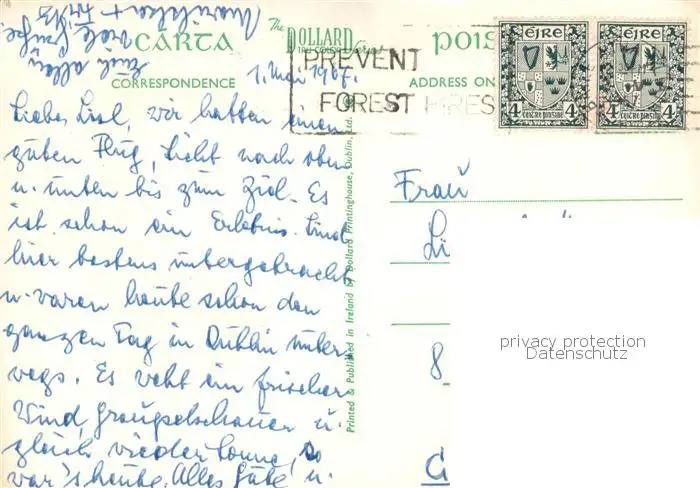 CÁRTA
The DOLLARD
TRU COLOR Card
POIS
CORRESPONDENCE
ADDRESS ON
PREVENT
FOREST FIRES
éire
éire
4 4
4 4
1. Mai 1967.
Liebe Lisl, wir hatten einen
guten Flug, Sicht nach oben
u. unten bis zum Ziel. Es
ist schon ein Erlebnis. Sind
hier bestens untergebracht
u. waren heute schon den
ganzen Tag in Dublin unter
wegs. Es weht ein frischer
Wind, Graupelschauer u.
gleich wieder Sonne, so
war's heute. Alles Gute u.
Euch allen
viele Grüße
Printed & Published in Ireland by Dollard Printinghouse, Dublin, Ltd.
Frau
Li
8
G
privacy protection
Datenschutz